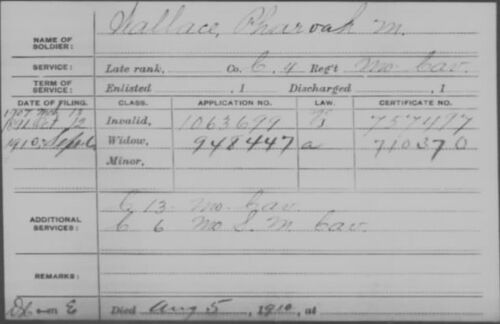 Wallace, Pharoah M.
NAME OF SOLDIER:
SERVICE: Late rank, Co. C. 4 Reg't Mo. Cav.
TERM OF SERVICE: Enlisted , 1 Discharged , 1
DATE OF FILING. CLASS. APPLICATION NO. LAW. CERTIFICATE NO.
1907 13
1891 Oct 12 Invalid, 1063699 757497
1910 Sept 6 Widow, 948447 a 710370
Minor,
C 13 Mo. Cav.
ADDITIONAL SERVICES: C 6 Mo S. M. Cav.
REMARKS:
E Died Aug 5, 1910, at